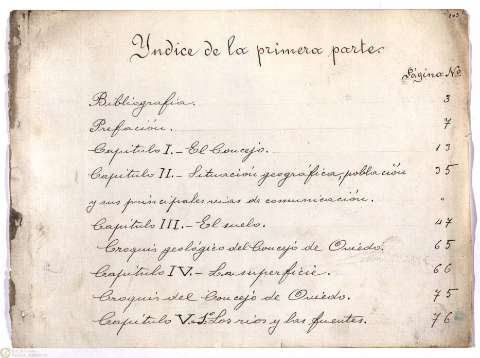 Yndice de la primera parte.
Página Nº
Bibliografía. 3
Prefación. 7
Capítulo I.- El Concejo. 13
Capítulo II.- Situación geográfica, población 35
y sus principales vias de comunicación. "
Capítulo III.- El suelo. 47
Croquis geológico del Concejo de Oviedo. 65
Capítulo IV.- La superficie. 66
Croquis del Concejo de Oviedo. 75
Capítulo V.- Los rios y las fuentes. 76